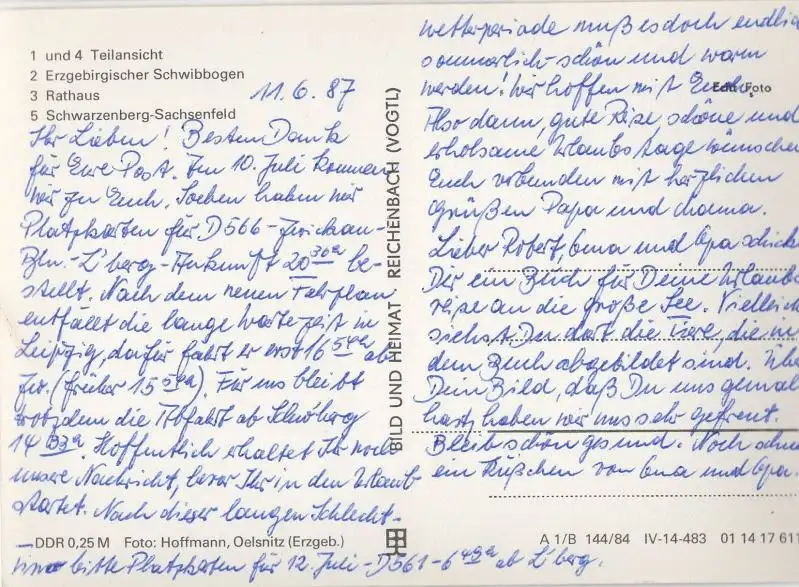 1 und 4 Teilansicht
2 Erzgebirgischer Schwibbogen
3 Rathaus
5 Schwarzenberg-Sachsenfeld
11.6.87
Ihr Lieben! Besten Dank
für Eure Post. Am 10. Juli kommen
wir zu Euch. Soeben haben wir
Platzkarten für D566-Zwickau-
Bln.-L'berg-Ankunft 20 be-
stellt. Nach dem neuen Fahrplan
entfällt die lange Wartezeit in
Leipzig, dafür fährt er erst 16 54 ab
Zw. (früher 15 ). Für uns bleibt
trotzdem die Abfahrt ab
14 33. Hoffentlich erhaltet Ihr noch
unsere Nachricht, bevor Ihr in den Urlaub
startet. Nach dieser langen Schlecht-
DDR 0,25 M Foto: Hoffmann, Oelsnitz (Erzgeb.)
bitte Platzkarten für 12. Juli-D561-6 49 ab L'berg.
BILD UND HEIMAT REICHENBACH (VOGTL)
wetterperiode muß es doch endlic
sommerlich-schön und warm
werden! Wir hoffen mit Euch.
Foto
Also dann, gute Reise, schöne und
erholsame Urlaubstage wünschen
Euch verbunden mit herzlichen
Grüßen Papa und Mama.
Lieber Robert, Oma und Opa schick
Dir ein Buch für Deine Urlaubs
reise an die große See. Vielleich
siehst Du dort die Tiere, die in
dem Buch abgebildet sind. Übe
Dein Bild, daß Du uns gemal
hast, haben wir uns sehr gefreut.
Bleib schön gesund. Noch
ein Küßchen von Oma und Opa.
A 1/B 144/84 IV-14-483 01 14 17 611